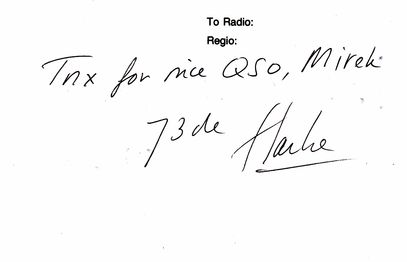 To Radio:
Regio:
Tnx for nice QSO, Mirek
73 de